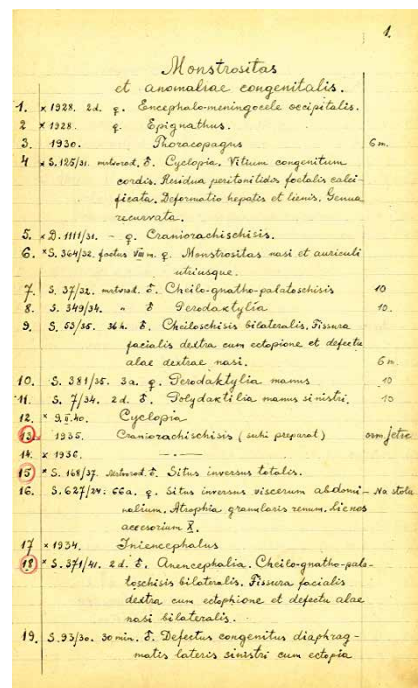 1.
Monstrositas
et anomaliae congenitalis.
1. × 1928. 2d. ♀. Encephalo-meningocele occipitalis.
2 × 1928. ♀. Epignathus.
3. 1930. Thoracopagus 6 m.
4 × S. 125/31. mrtvorod. ♂. Cyclopia. Vitium congenitum
cordis. Residua peritonitidos foetalis calci-
ficata. Deformatio hepatis et lienis. Genua
recurvata.
5. × D. 1111/31. – ♀. Craniorachischisis.
6. × S. 364/32. foetus VIII m. ♀. Monstrositas nasi et auriculi
utriusque.
7. S. 37/32. mrtvorod. ♂. Cheilo-gnatho-palatoschisis 10
8. S. 349/34. " ♂ Perodaktylia 10.
9. S. 53/35. 36 h. ♂. Cheiloschisis bilateralis. Fissura
facialis dextra cum ectopione et defectu
alae dextrae nasi. 6 m.
10. S. 381/35. 3a. ♀. Perodaktylia manus 10
11. S. 7/34. 2d. ♂. Polydaktilia manus sinistri. 10
12. × 9.II.40. Cyclopia
13. 1935. Craniorachischisis (suhi preparat)
14. × 1936. —·—
15 × S. 168/37. Mrtvorod. ♂. Situs inversus totalis.
16. S. 627/24: 66a. ♀. Situs inversus viscerum abdomi- Na stolu
nalium. Atrophia granularis renum. Lienes
accesorium X.
17 × 1934. Iniencephalus
18 × S. 371/41. 2d. ♂. Anencephalia. Cheilo-gnatho-pala-
toschisis bilateralis. Fissura facialis
dextra cum ectophione et defectu alae
nasi bilateralis.
19. S. 93/30. 30 min. ♂. Defectus congenitus diaphrag-
matis lateris sinistri cum ectopia